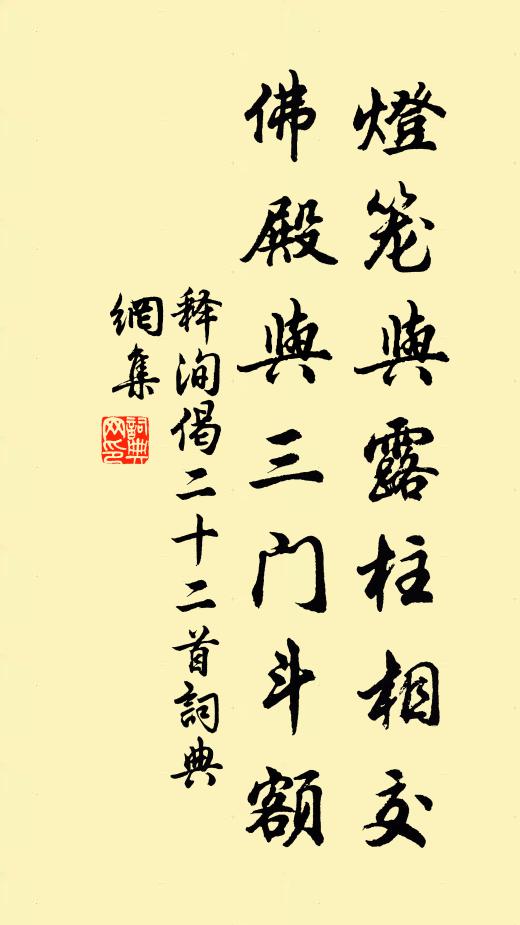 燈笼與露柱相交
佛殿與三门斗額
释洵偈二十二首詞典
網集
詞典
网印